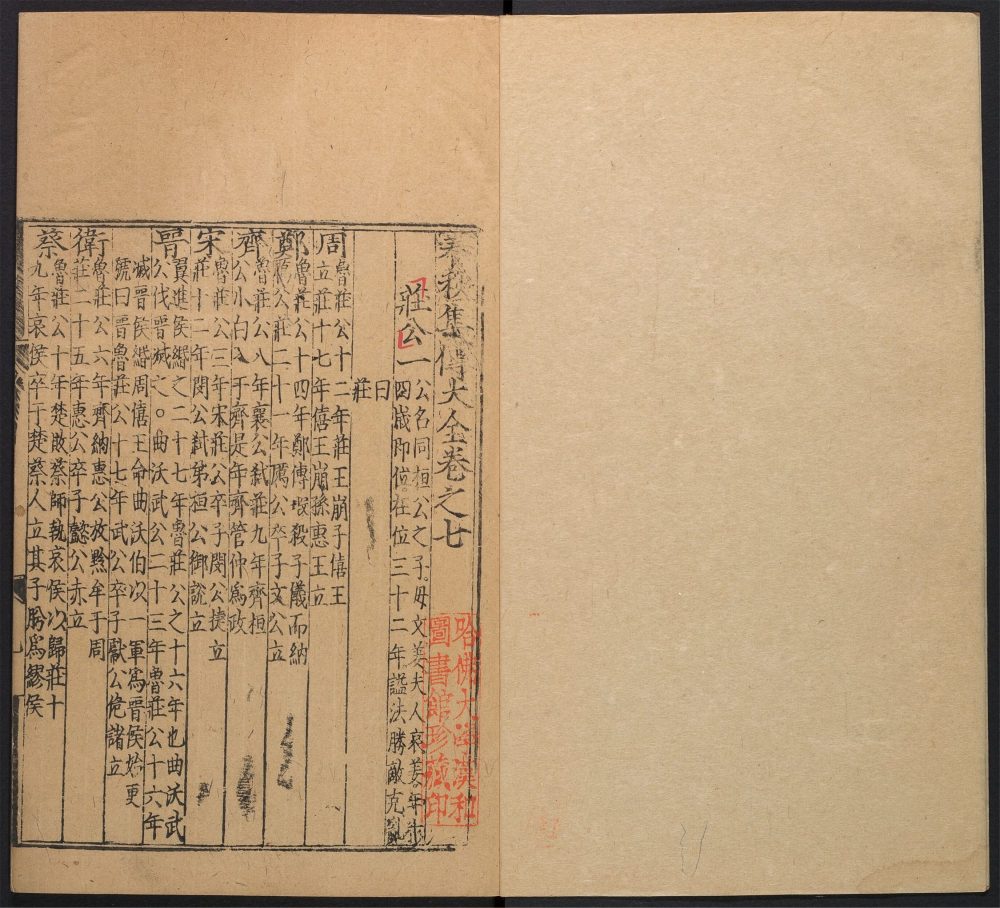 春秋集傳大全卷之七
哈佛大學漢和
圖書館珍藏印
莊公一
公名同桓公之子母文姜夫人哀姜年十
四歲即位在位三十二年謚法勝敵克亂
曰
莊
周
魯莊公十二年莊王崩子僖王
立莊十七年僖王崩孫惠王立
鄭
魯莊公十四年鄭傅瑕殺子儀而納
厲公莊二十一年厲公卒子文公立
齊
魯莊公八年襄公弒莊九年齊桓
公小白入于齊是年齊管仲爲政
宋
魯莊公三年宋莊公卒子閔公捷立
莊十二年閔公弒弟桓公御說立
晉
翼進侯緡之二十七年魯莊公之十六年也曲沃武
公伐晉滅之○曲沃武公二十三年魯莊公十六年
滅晉侯緡周僖王命曲沃伯以一軍爲晉侯始更
號曰晉魯莊公十七年武公卒子獻公佹諸立
衛
魯莊公六年齊納惠公放黔牟于周
莊二十五年惠公卒子懿公赤立
蔡
魯莊公十年楚敗蔡師執哀侯以歸莊十
九年哀侯卒于楚蔡人立其子肹爲繆侯